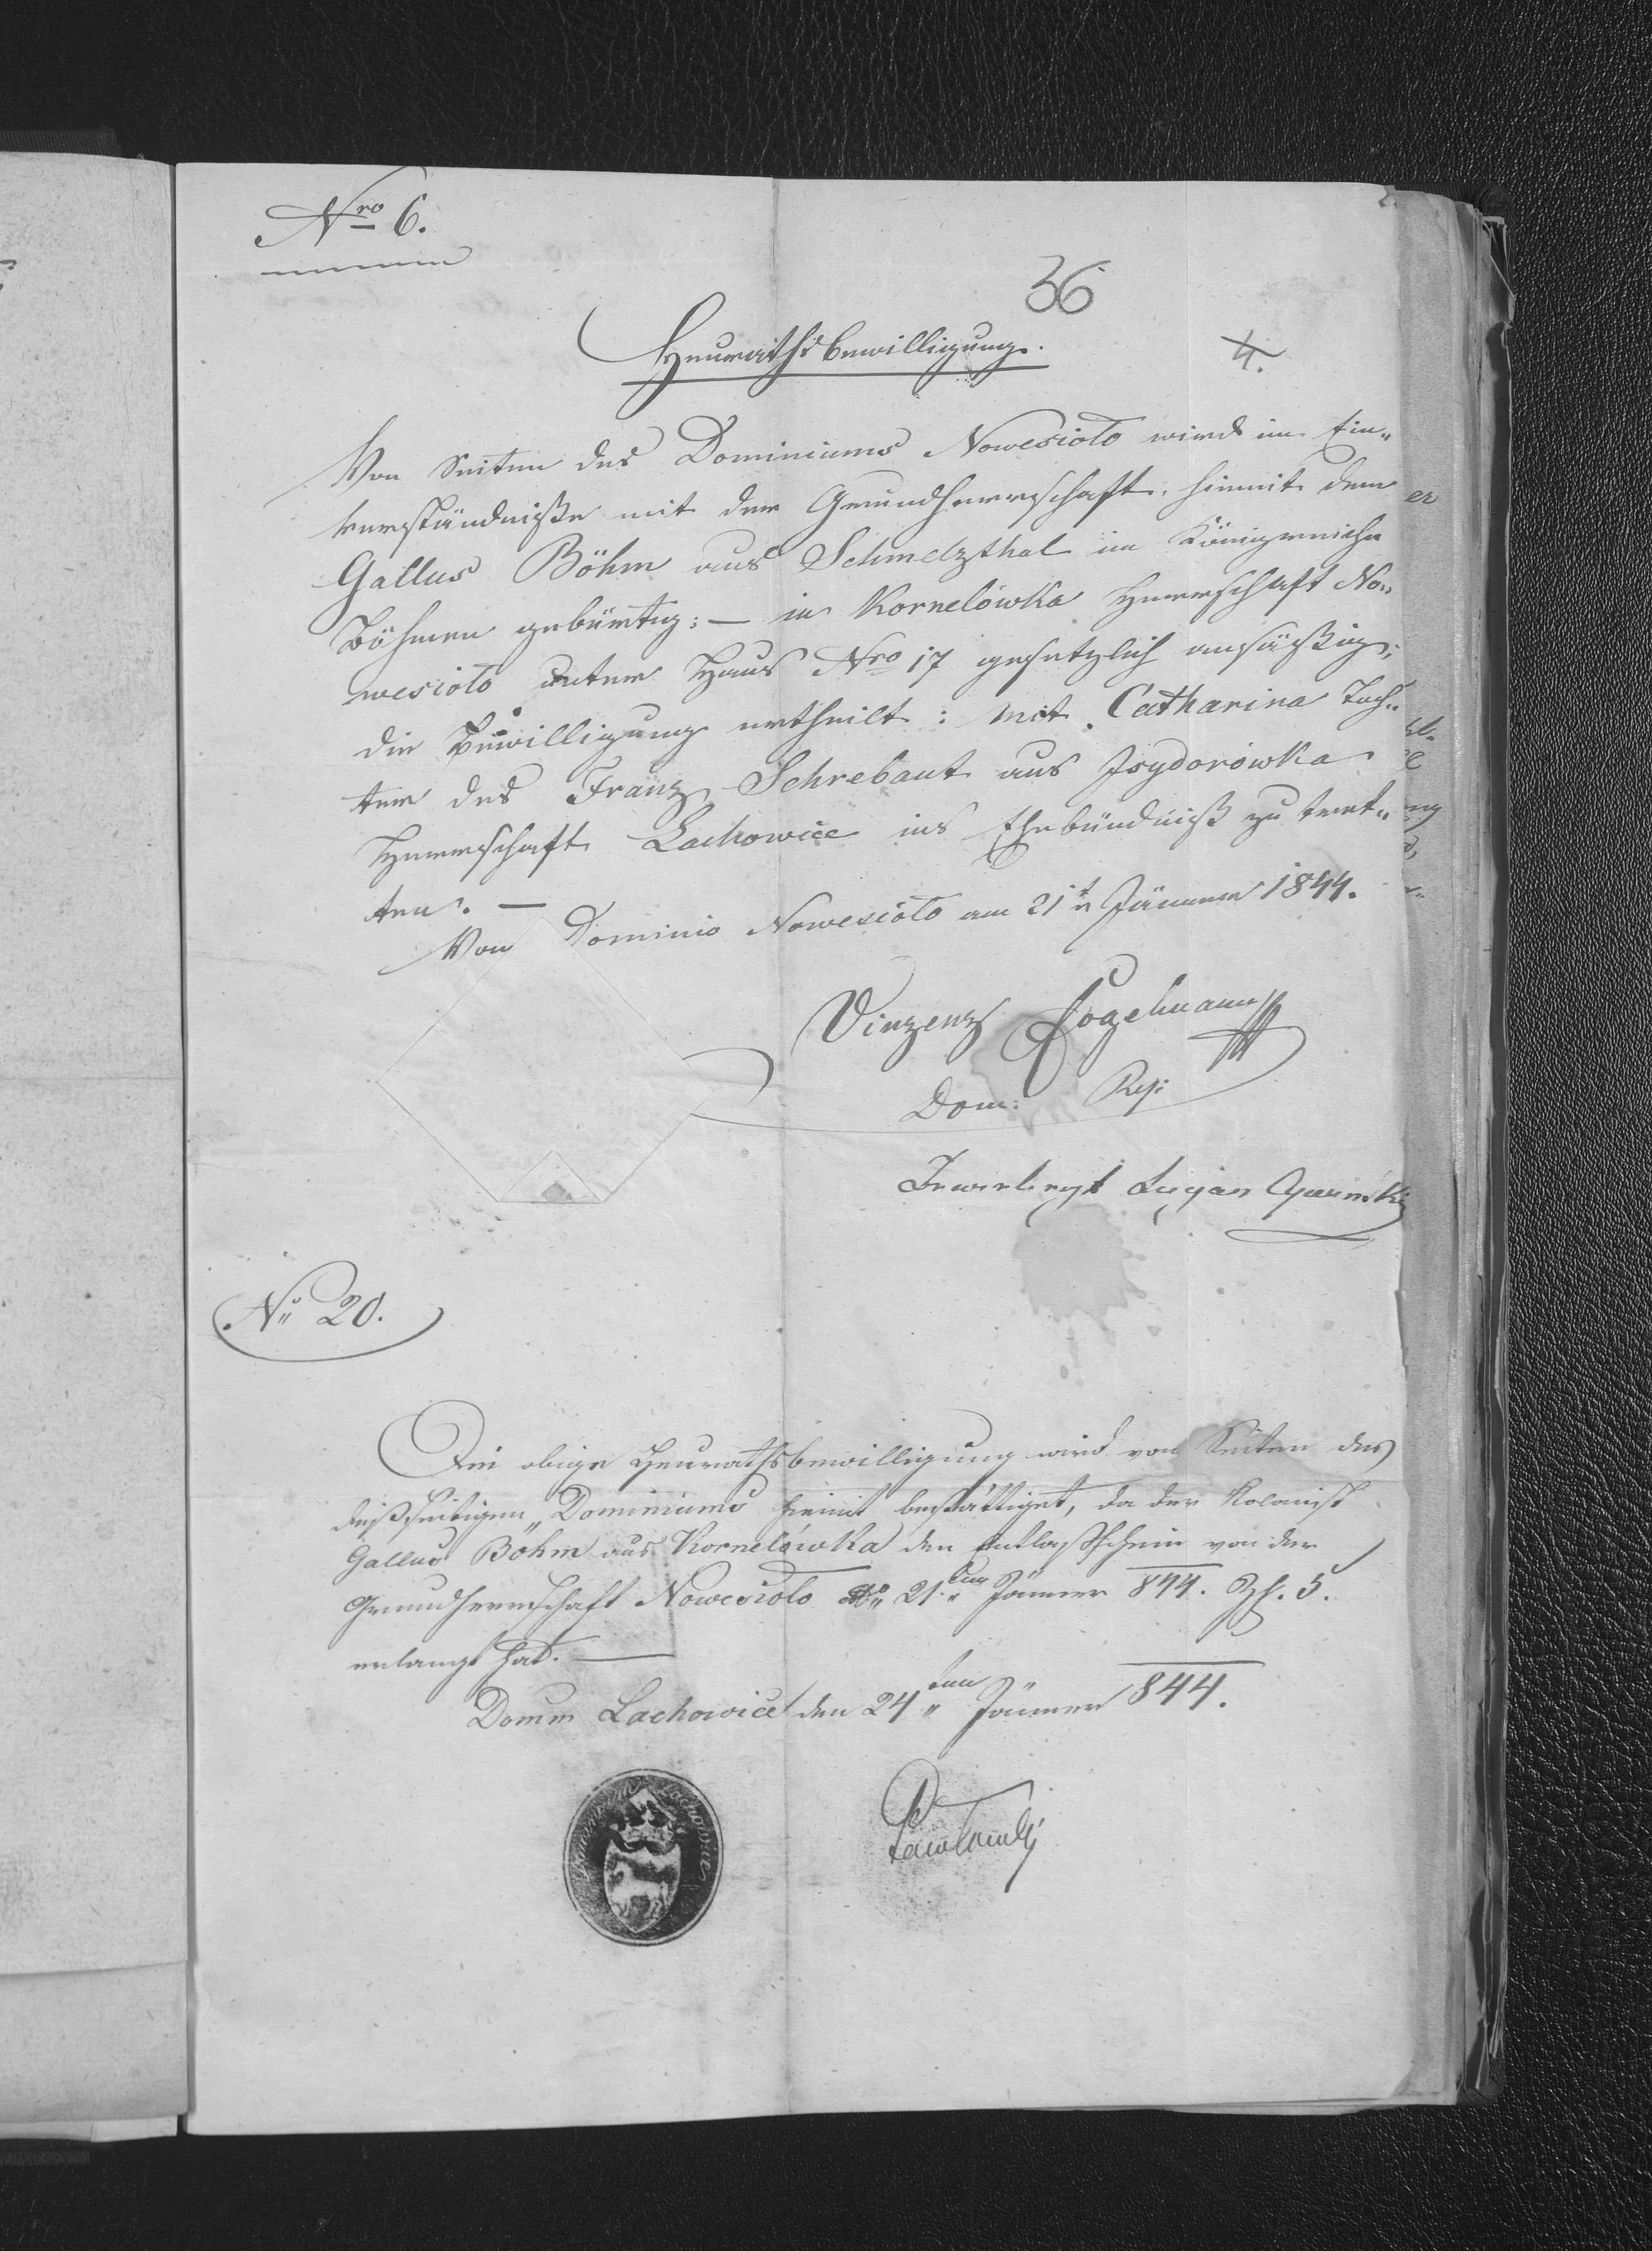 Nro 6.
36
Heurathsbewilligung.
4.
Von Seiten des Dominiums Nowesioło wird im Ein„
verständniße mit der Grundherrschaft, hiemit dem
Gallus Böhm aus Schmelzthal im Königreiche
Böhmen gebürtig: — in Kornelówka Herrschaft No„
wesioło unter Haus Nro 17 gesetzlich ansäßig;
die Bewilligung ertheilt: mit Catharina Toch„
ter des Franz Schrebant aus Isydorówka
Herrschaft Lachowice ins Ehebündniß zu tret„
ten. —
Vom Dominio Nowesioło am 21t Jänner 1844.
Vinzenz
Dom:
Lucyan
No 20.
Die obige Heurathsbewilligung wird von Seiten des
dießseitigen Dominiums hiemit bestättiget, da der Kolonist
Gallus Böhm aus Kornelówka den Entlaßschein von der
Grundherrschaft Nowesioło 21ten Jänner 844. Zh. 5.
erlangt hat. —
Domin Lachowice den 24ten Jänner 844.